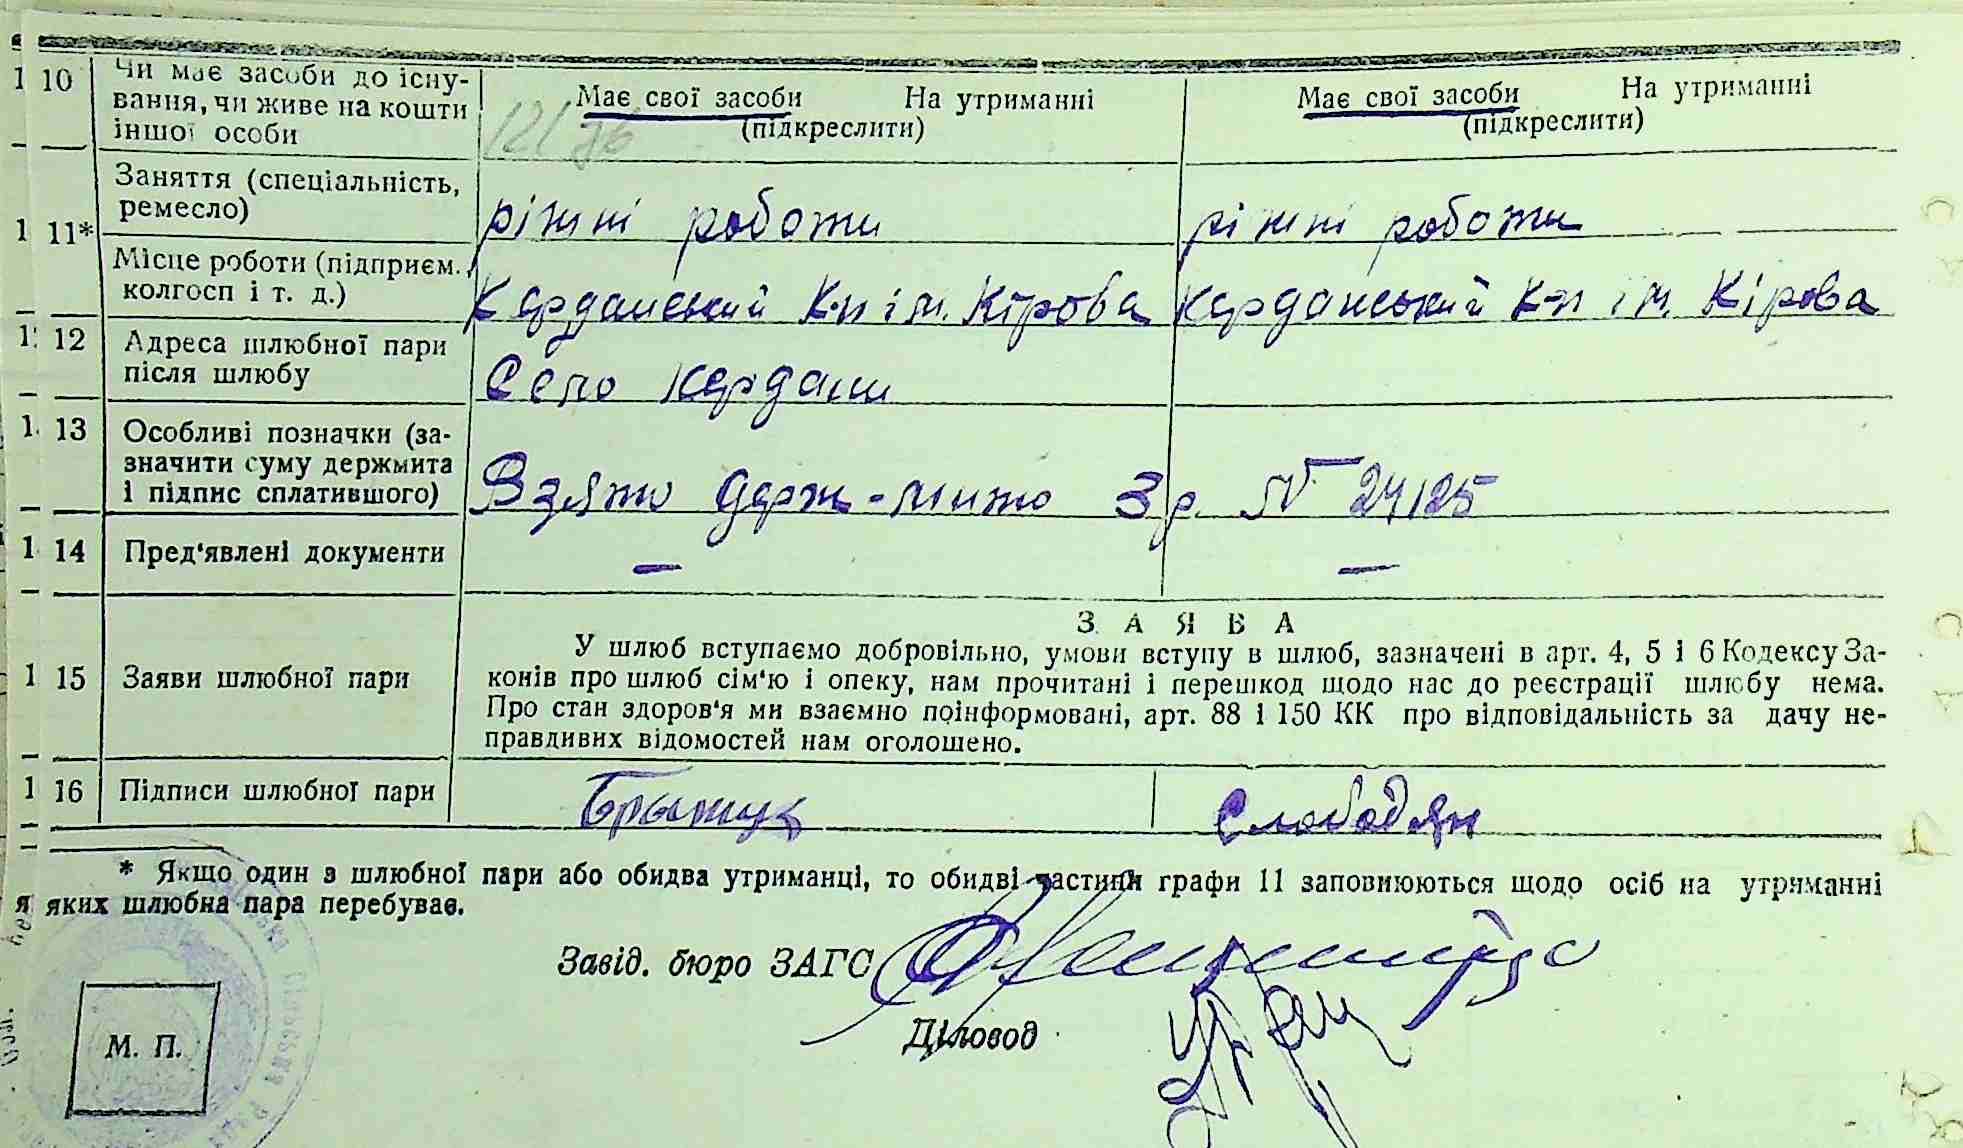 10 Чи має засоби до існу-
вання, чи живе на кошти
іншої особи
Має свої засоби На утриманні
(підкреслити)
Має свої засоби На утриманні
(підкреслити)
11* Заняття (спеціальність,
ремесло)
ріжні роботи
ріжні роботи
Місце роботи (підприєм.,
колгосп і т. д.)
Карданський к-п ім. Кірова
Карданський к-п ім. Кірова
12 Адреса шлюбної пари
після шлюбу
Село Кардаши
13 Особливі позначки (за-
значити суму держмита
і підпис сплатившого)
Взято держ-мито 3 р. № 24125
14 Пред'явлені документи
— —
ЗАЯВА
15 Заяви шлюбної пари
У шлюб вступаємо добровільно, умови вступу в шлюб, зазначені в арт. 4, 5 і 6 Кодексу За-
конів про шлюб сім'ю і опеку, нам прочитані і перешкод щодо нас до реєстрації шлюбу нема.
Про стан здоров'я ми взаємно поінформовані, арт. 88 і 150 КК про відповідальність за дачу не-
правдивих відомостей нам оголошено.
16 Підписи шлюбної пари
Слободян
* Якщо один з шлюбної пари або обидва утриманці, то обидві частини графи 11 заповнюються щодо осіб на утриманні
яких шлюбна пара перебуває.
Завід. бюро ЗАГС
Діловод
М. П.